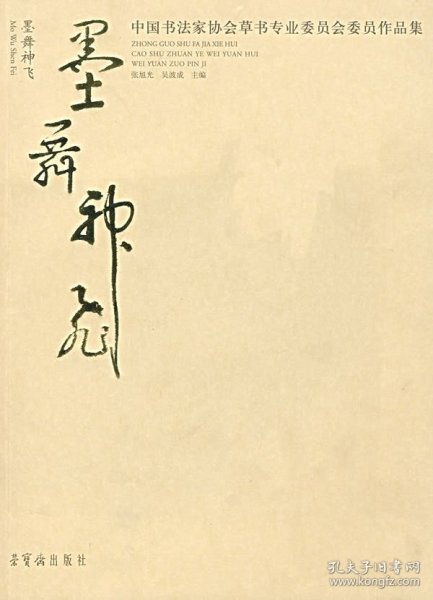 墨舞神飞
Mo Wu Shen Fei
墨舞神飞
中国书法家协会草书专业委员会委员作品集
ZHONG GUO SHU FA JIA XIE HUI
CAO SHU ZHUAN YE WEI YUAN HUI
WEI YUAN ZUO PIN JI
张旭光 吴波成 主编
荣宝斋出版社
孔夫子旧书网